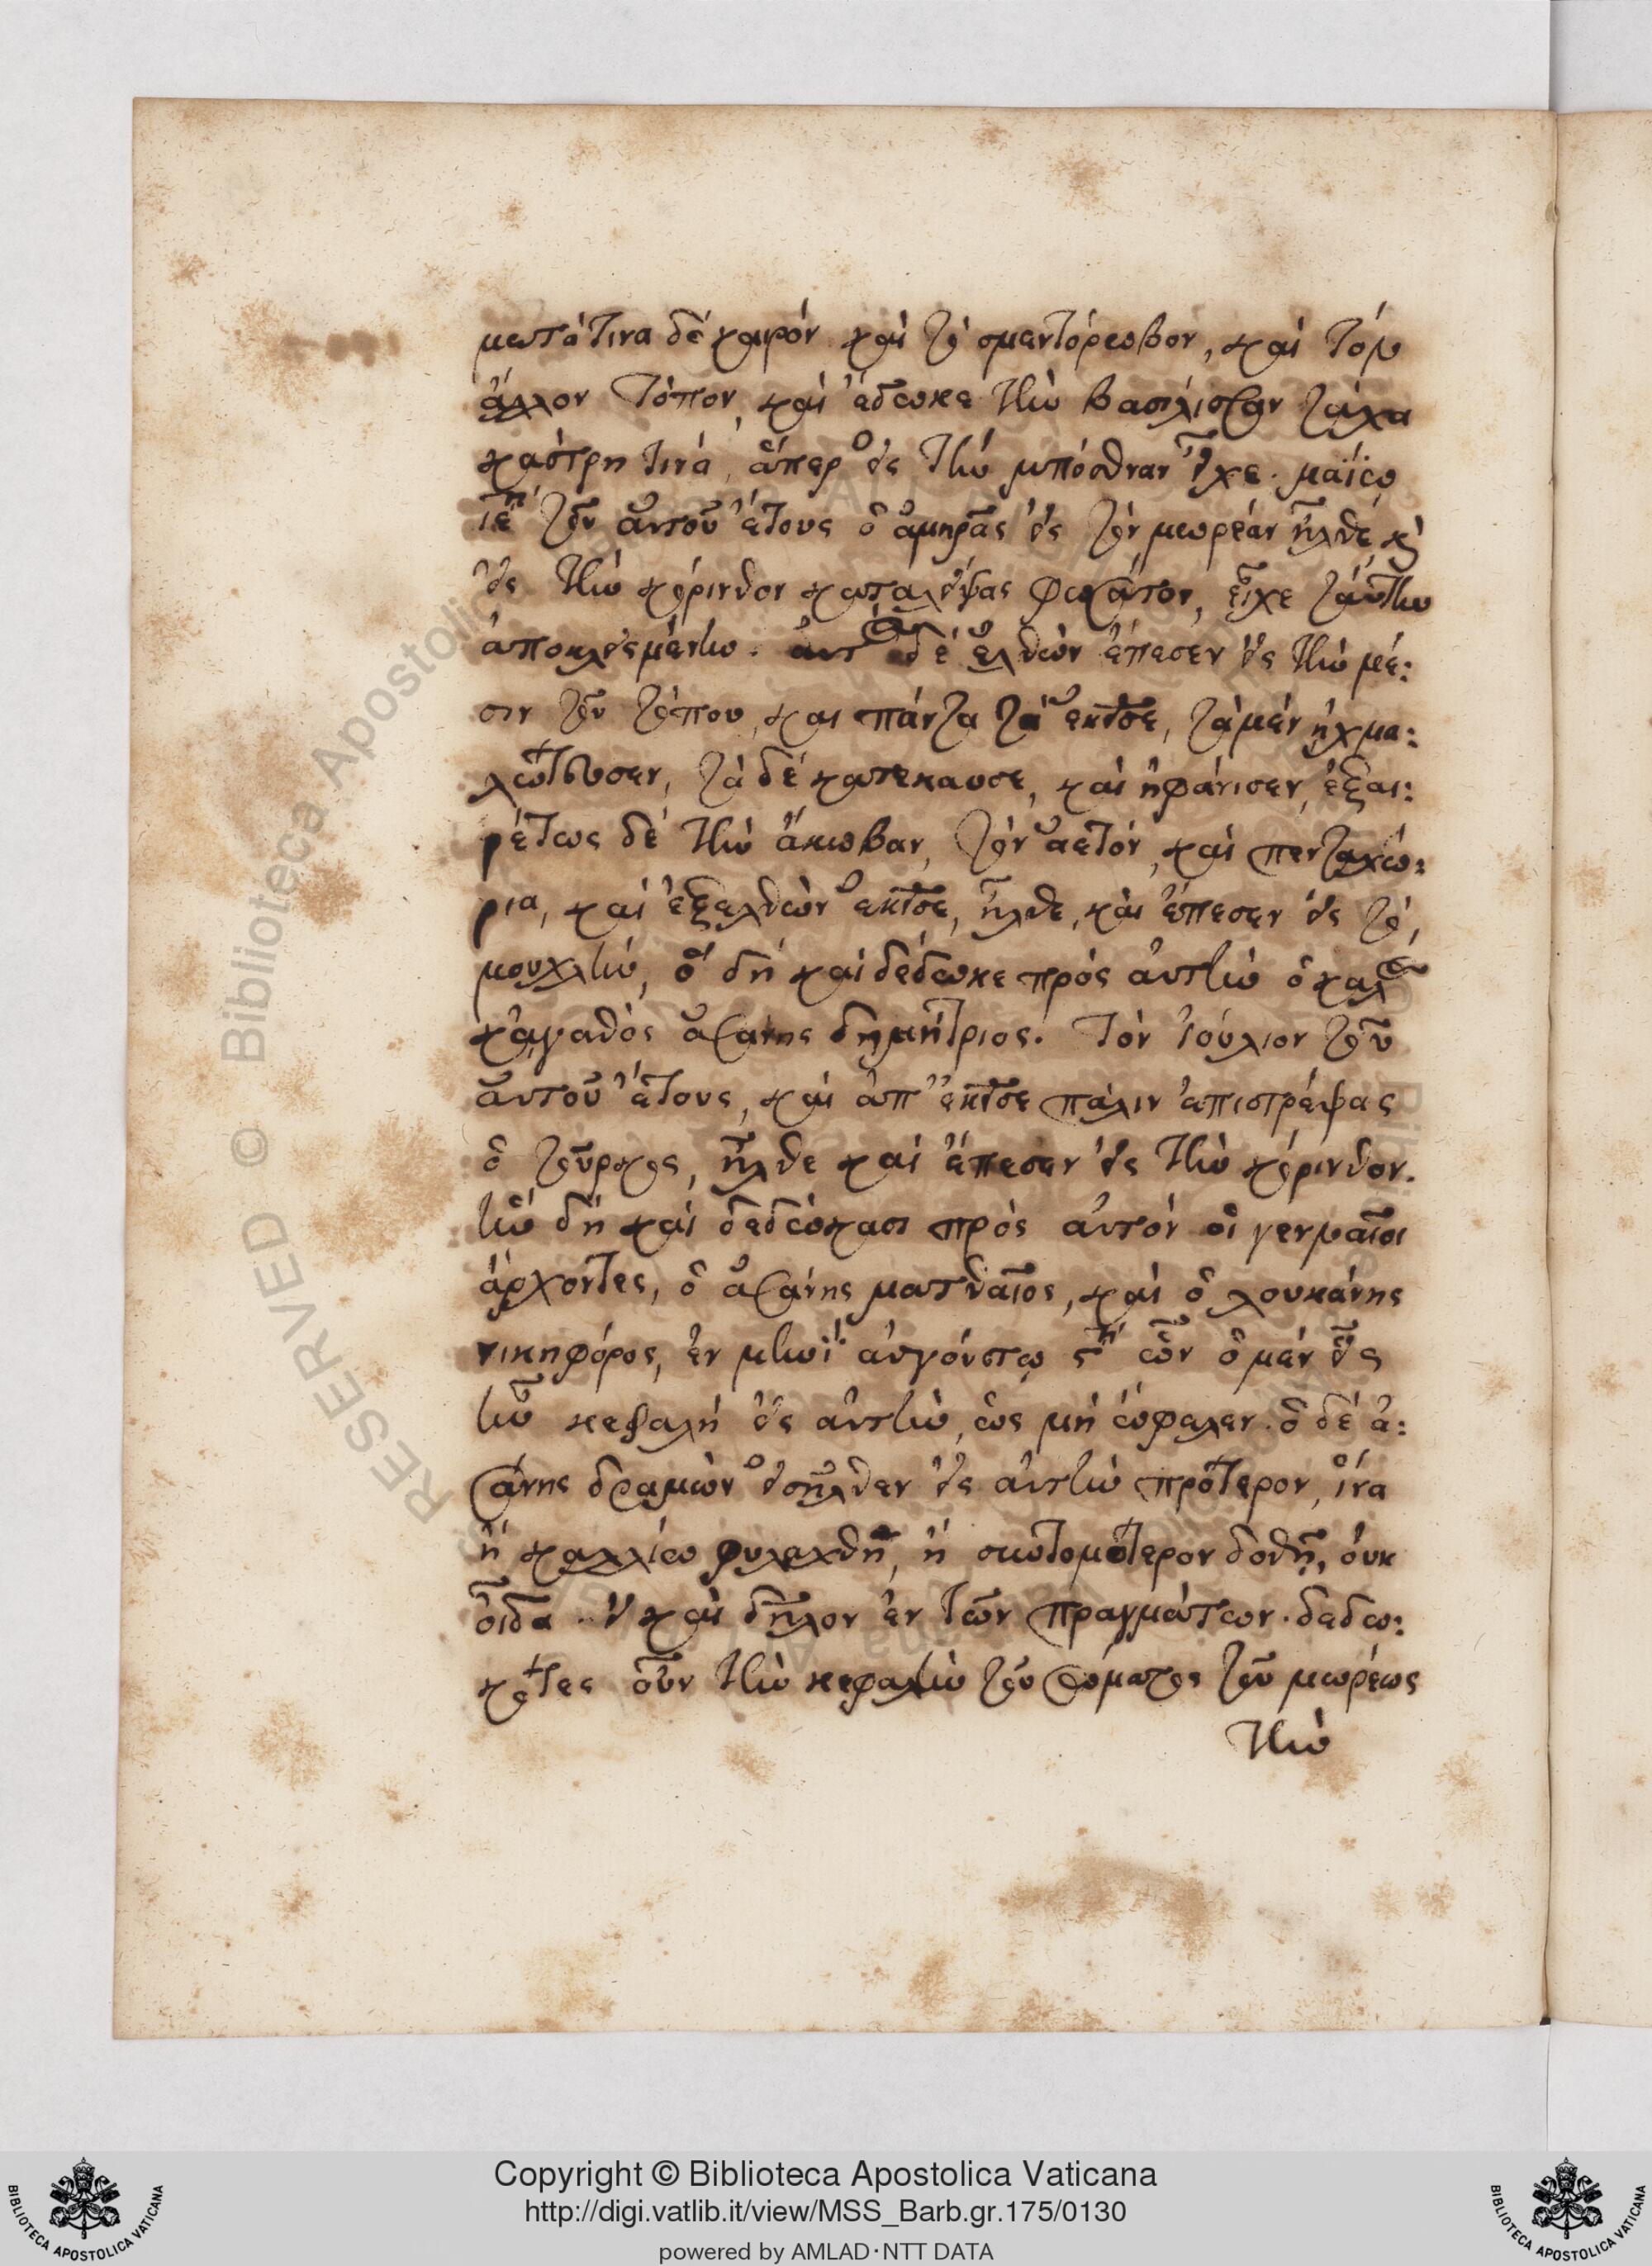 μετά τινα δὲ καιρὸν καὶ τὸ σμεντόρεωβον, καὶ τὸν
ἄλλον τόπον, καὶ ἔδωκε τὴν βασίλισσαν τάχα
κάστρη τινά, ἅπερ εἰς τὴν μπόσθναν εἶχε. μαΐῳ
ιεῃ τοῦ αὐτοῦ ἔτους ὁ ἀμηρᾶς εἰς τὸν μωρέαν ἦλθε, κὶ
εἰς τὴν κόρινθον καταλείψας φωσάτον, εἶχε ταύτην
ἀποκλεισμένην. αὐτὸς δὲ ἐλθὼν ἔπεσεν εἰς τὴν μέ:
σιν τοῦ τόπου, και πάντα τὰ ἐκεῖσε, τὰ μὲν ἠχμα:
λώτευσεν, τὰ δὲ κατεκαυσε, καὶ ἠφάνισεν, ἐξαι:
ρέτως δὲ τὴν ἄκωβαν, τὸν ἀετὸν, καὶ πενταχώ:
ρια, καὶ ἐξελθὼν ἐκεῖσε, ἦλθε, καὶ ἔπεσεν εἰς τὸ,
μουχλὴν, ὃ δὴ καὶ δέδωκε πρὸς αὐτὴν ὁ καλὸς
κἀγαθὸς ἀσάνης δημήτριος. τὸν ἰούλιον τοῦ
αὐτοῦ ἔτους, καὶ ἀπ' ἐκεῖσε πάλιν ἐπιστρέψας
ὁ τοῦρκος, ἦλθε καὶ ἔπεσεν εἰς τὴν κόρινθον.
ἣν δὴ καὶ δεδώκασι πρὸς αὐτὸν οἱ γενναῖοι
ἄρχοντες, ὁ ἀσάνης ματθαῖος, καὶ ὁ λουκάνης
νικηφόρος, ἐν μηνὶ αὐγούστῳ ςῃ ὧν ὁ μὲν εἷς
ἦν κεφαλὴ εἰς αὐτὴν, ὡς μὴ ὤφελεν. ὁ δὲ ἀ:
σάνης δραμὼν εἰσῆλθεν εἰς αὐτὴν πρότερον, ἵνα
ἢ καλλίω φυλαχθῇ, ἢ συντομώτερον δοθῇ, οὐκ
οἶδα. εἰ καὶ δῆλον ἐκ τῶν πραγμάτων. δεδω:
κότες οὖν τὴν κεφαλὴν τοῦ σώματος τοῦ μωρέως
τὴν
Copyright © Biblioteca Apostolica Vaticana
http://digi.vatlib.it/view/MSS_Barb.gr.175/0130
powered by AMLAD·NTT DATA